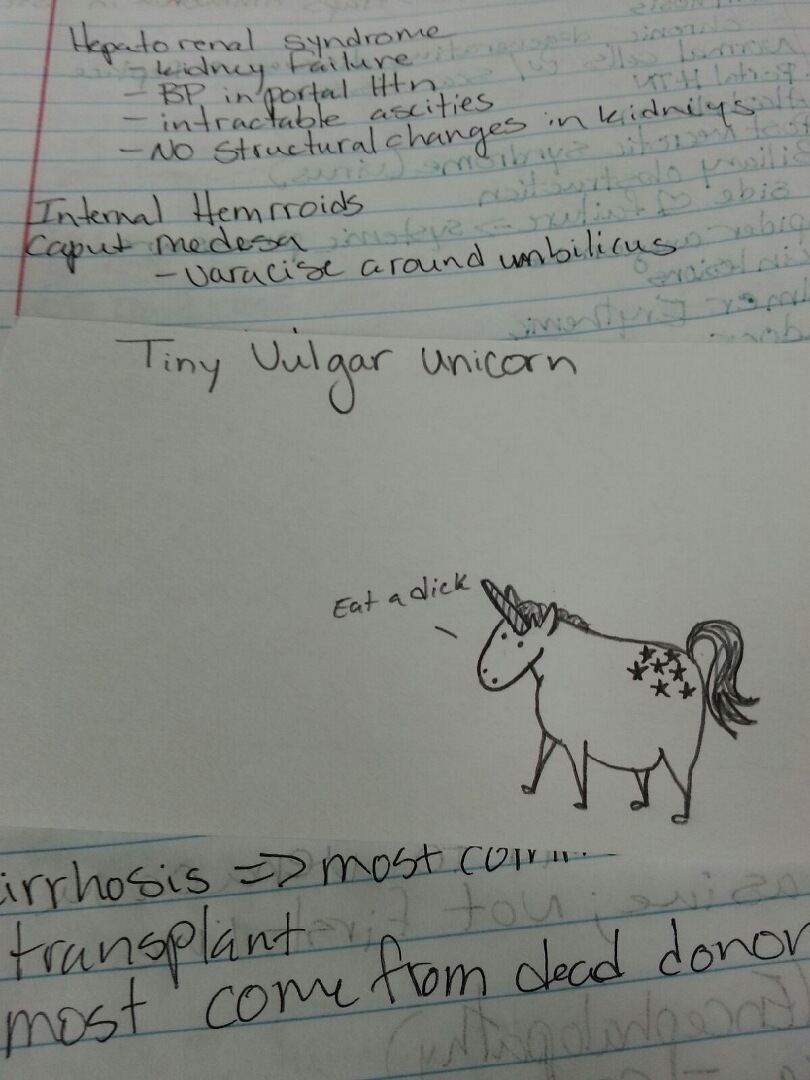 Hepatorenal syndrome
- kidney failure
- BP in portal Htn
- intractable ascities
- No structural changes in kidnilys
Internal Hemrroids
Caput medesa
- varacise around umbilicus
Tiny Vulgar unicorn
Eat a dick
irrhosis => most com
transplant
most come from dead donor